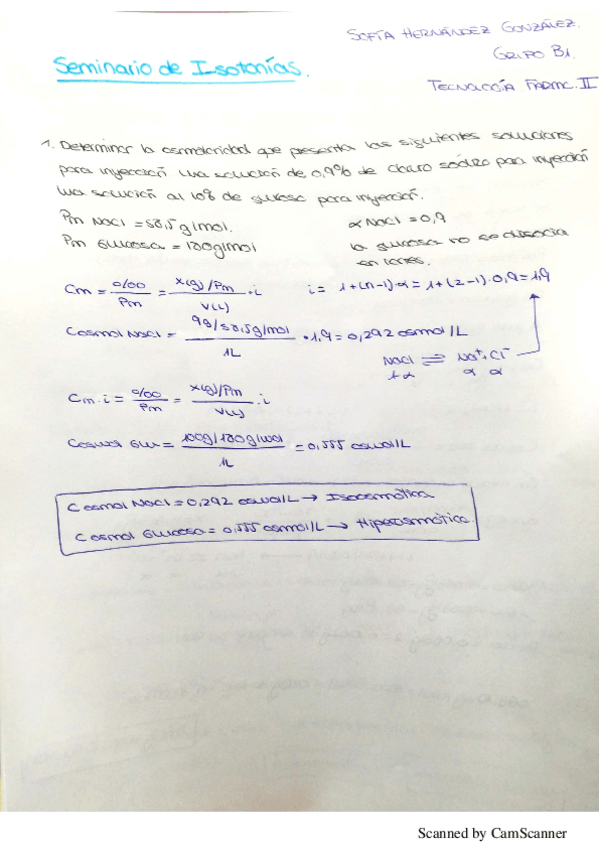 SOFÍA HERNÁNDEZ GONZÁLEZ.
GRUPO B1.
TECNOLOGÍA FARMC. II
Seminario de Isotonías.
1. Determinar la osmolaridad que presenta las siguientes soluciones
para inyección una solución de 0,9% de cloruro sódico para inyección
una solución al 10% de glucosa para inyección.
Pm NaCl = 58,5 g/mol.
α NaCl = 0,9
Pm Glucosa = 180g/mol
la glucosa no se disocia
en iones.
Cm = %00/Pm = x(g)/Pm / V(L) · i
i = 1+(n-1)·α = 1+(2-1)·0,9 = 1,9
Cosmol NaCl = 9g/58,5g/mol / 1L · 1,9 = 0,292 osmol/L
NaCl ⇌ Na⁺ + Cl⁻
1-α α α
Cm·i = %00/Pm = x(g)/Pm / V(L) · i
Cosmol Glu = 100g/180g/mol / 1L = 0,555 osmol/L
Cosmol NaCl = 0,292 osmol/L → Isoosmótica
Cosmol Glucosa = 0,555 osmol/L → Hiperosmótica.
Scanned by CamScanner